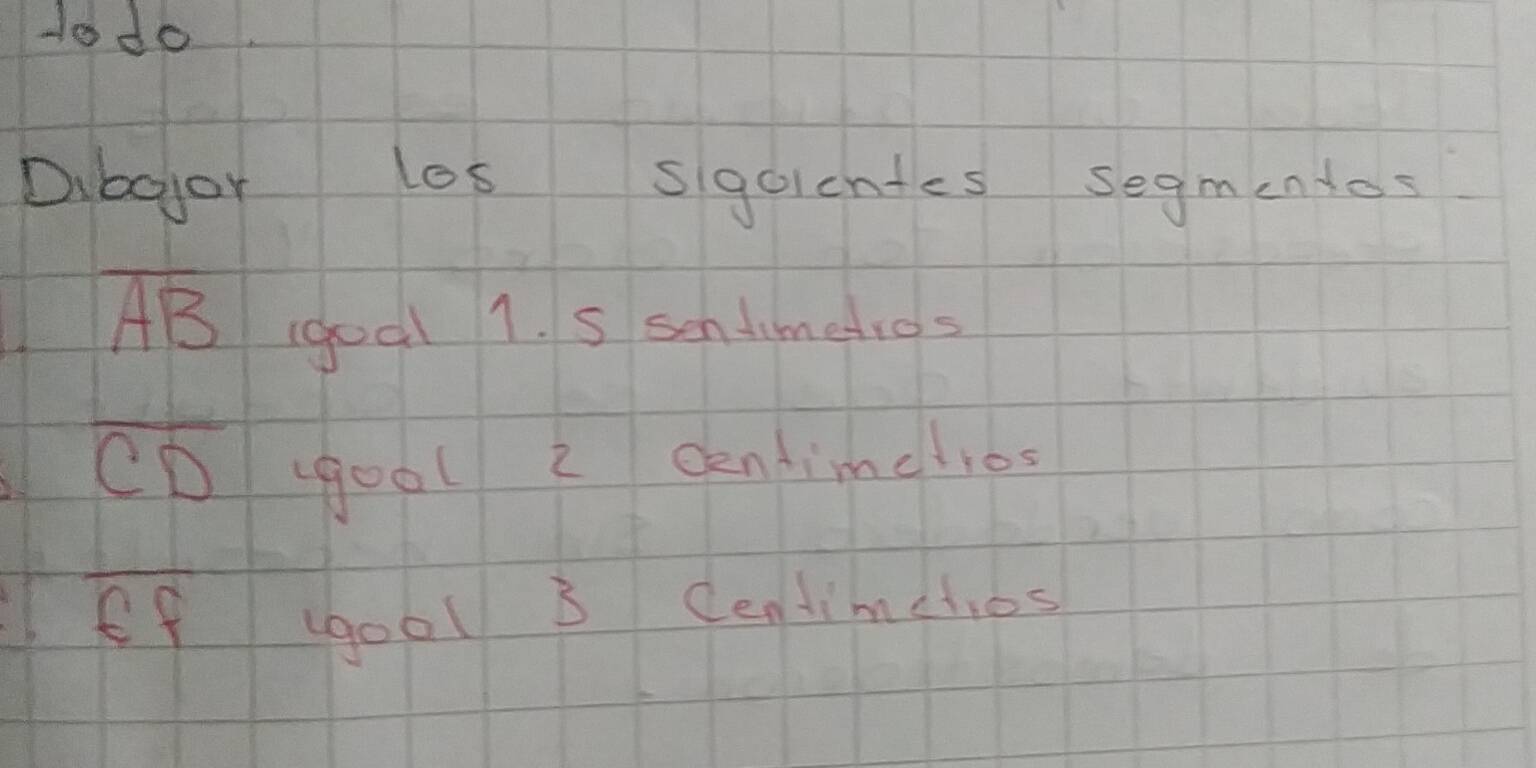 todo.
Dibojor los sigoientes segmentos
AB igoal 1.5 sentimetros
CD igoal 2 centimetros
Ef igoal 3 Centimetros